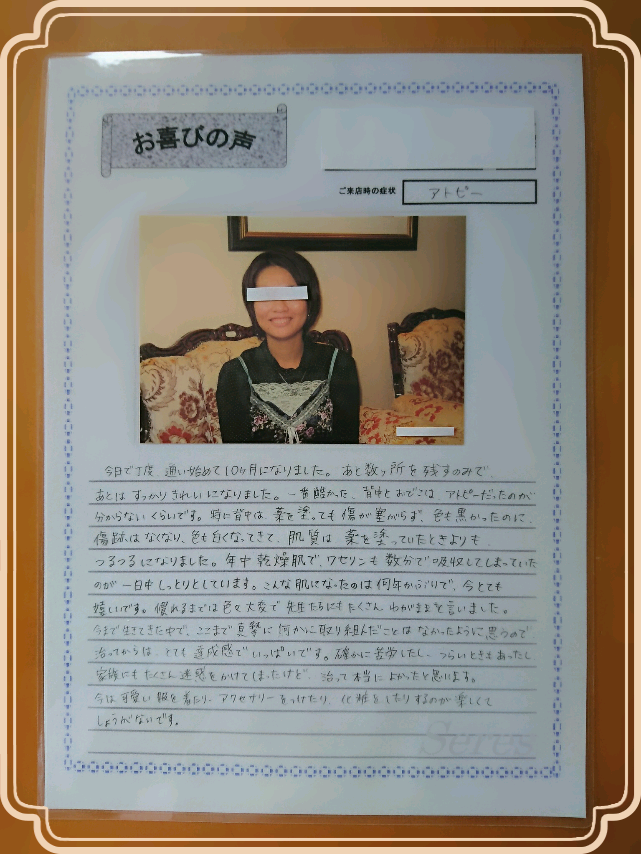 お喜びの声
ご来店時の症状
アトピー
今日で丁度 通い始めて10ヶ月になりました。あと数ヶ所を残すのみで、
あとは すっかりきれいになりました。一番酷かった、背中とおでこは、アトピーだったのが
分からないくらいです。特に背中は、薬を塗っても傷が塞がらず、色も黒かったのに、
傷跡はなくなり、色も白くなってきて、肌質は 薬を塗っていたときよりも、
つるつるになりました。年中乾燥肌で、ワセリンも数分で吸収してしまっていた
のが 一日中しっとりとしています。こんな肌になったのは何年かぶりで、今とても
嬉しいです。慣れるまでは色々大変で 先生たちにもたくさん わがままを言いました。
今まで生きてきた中で、ここまで真摯に何かに取り組んだことは なかったように思うので
治ってからは、とても達成感でいっぱいです。確かに苦労したし、つらいときもあったし
家族にもたくさん迷惑をかけてしまったけど、治って本当に よかったと思います。
今は可愛い服を着たり、アクセサリーをつけたり、化粧をしたりするのが楽しくて
しょうがないです。